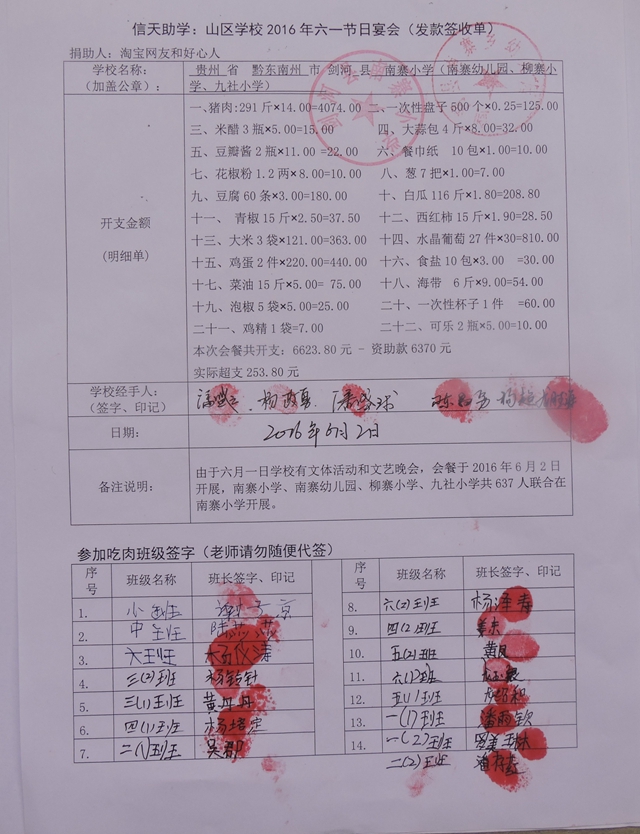 信天助学：山区学校 2016 年六一节日宴会（发款签收单）
捐助人：淘宝网友和好心人
学校名称：
（加盖公章）：
贵州 省 黔东南州 市 剑河 县 南寨小学（南寨幼儿园、柳寨小学、九社小学）
开支金额
(明细单)
一、猪肉:291 斤×14.00=4074.00 二、一次性盘子 500 个×0.25=125.00
三、米醋 3 瓶×5.00=15.00 四、大蒜包 4 斤×8.00=32.00
五、豆瓣酱 2 瓶×11.00 =22.00 六、餐巾纸 10 包×1.00=10.00
七、花椒粉 1.2 两×8.00=10.00 八、葱 7 把×1.00=7.00
九、豆腐 60 条×3.00=180.00 十、白瓜 116 斤×1.80=208.80
十一、 青椒 15 斤×2.50=37.50 十二、西红柿 15 斤×1.90=28.50
十三、大米 3 袋×121.00=363.00 十四、水晶葡萄 27 件×30=810.00
十五、鸡蛋 2 件×220.00=440.00 十六、食盐 10 包×3.00 =30.00
十七、菜油 15 斤×5.00= 75.00 十八、海带 6 斤×9.00=54.00
十九、泡椒 5 袋×5.00=25.00 二十、一次性杯子 1 件 =60.00
二十一、鸡精 1 袋=7.00 二十二、可乐 2 瓶×5.00=10.00
本次会餐共开支：6623.80 元 - 资助款 6370 元
实际超支 253.80 元
学校经手人：
（签字、印记）
日期：
2016年6月2日
备注说明：
由于六月一日学校有文体活动和文艺晚会，会餐于 2016 年 6 月 2 日
开展，南寨小学、南寨幼儿园、柳寨小学、九社小学共 637 人联合在
南寨小学开展。
参加吃肉班级签字（老师请勿随便代签）
序号 班级名称 班长签字、印记 序号 班级名称 班长签字、印记
1. 小班 8. 六(2)班 杨泽寿
2. 中班 9. 四(2)班
3. 大班 10. 五(2)班 黄凤
4. 三(2)班 11. 六(1)班
5. 三(1)班 黄丹丹 12. 五(1)班
6. 四(1)班 杨培定 13. 一(1)班 潘雨钦
7. 二(1)班 吴郡 14. 一(2)班
二(2)班